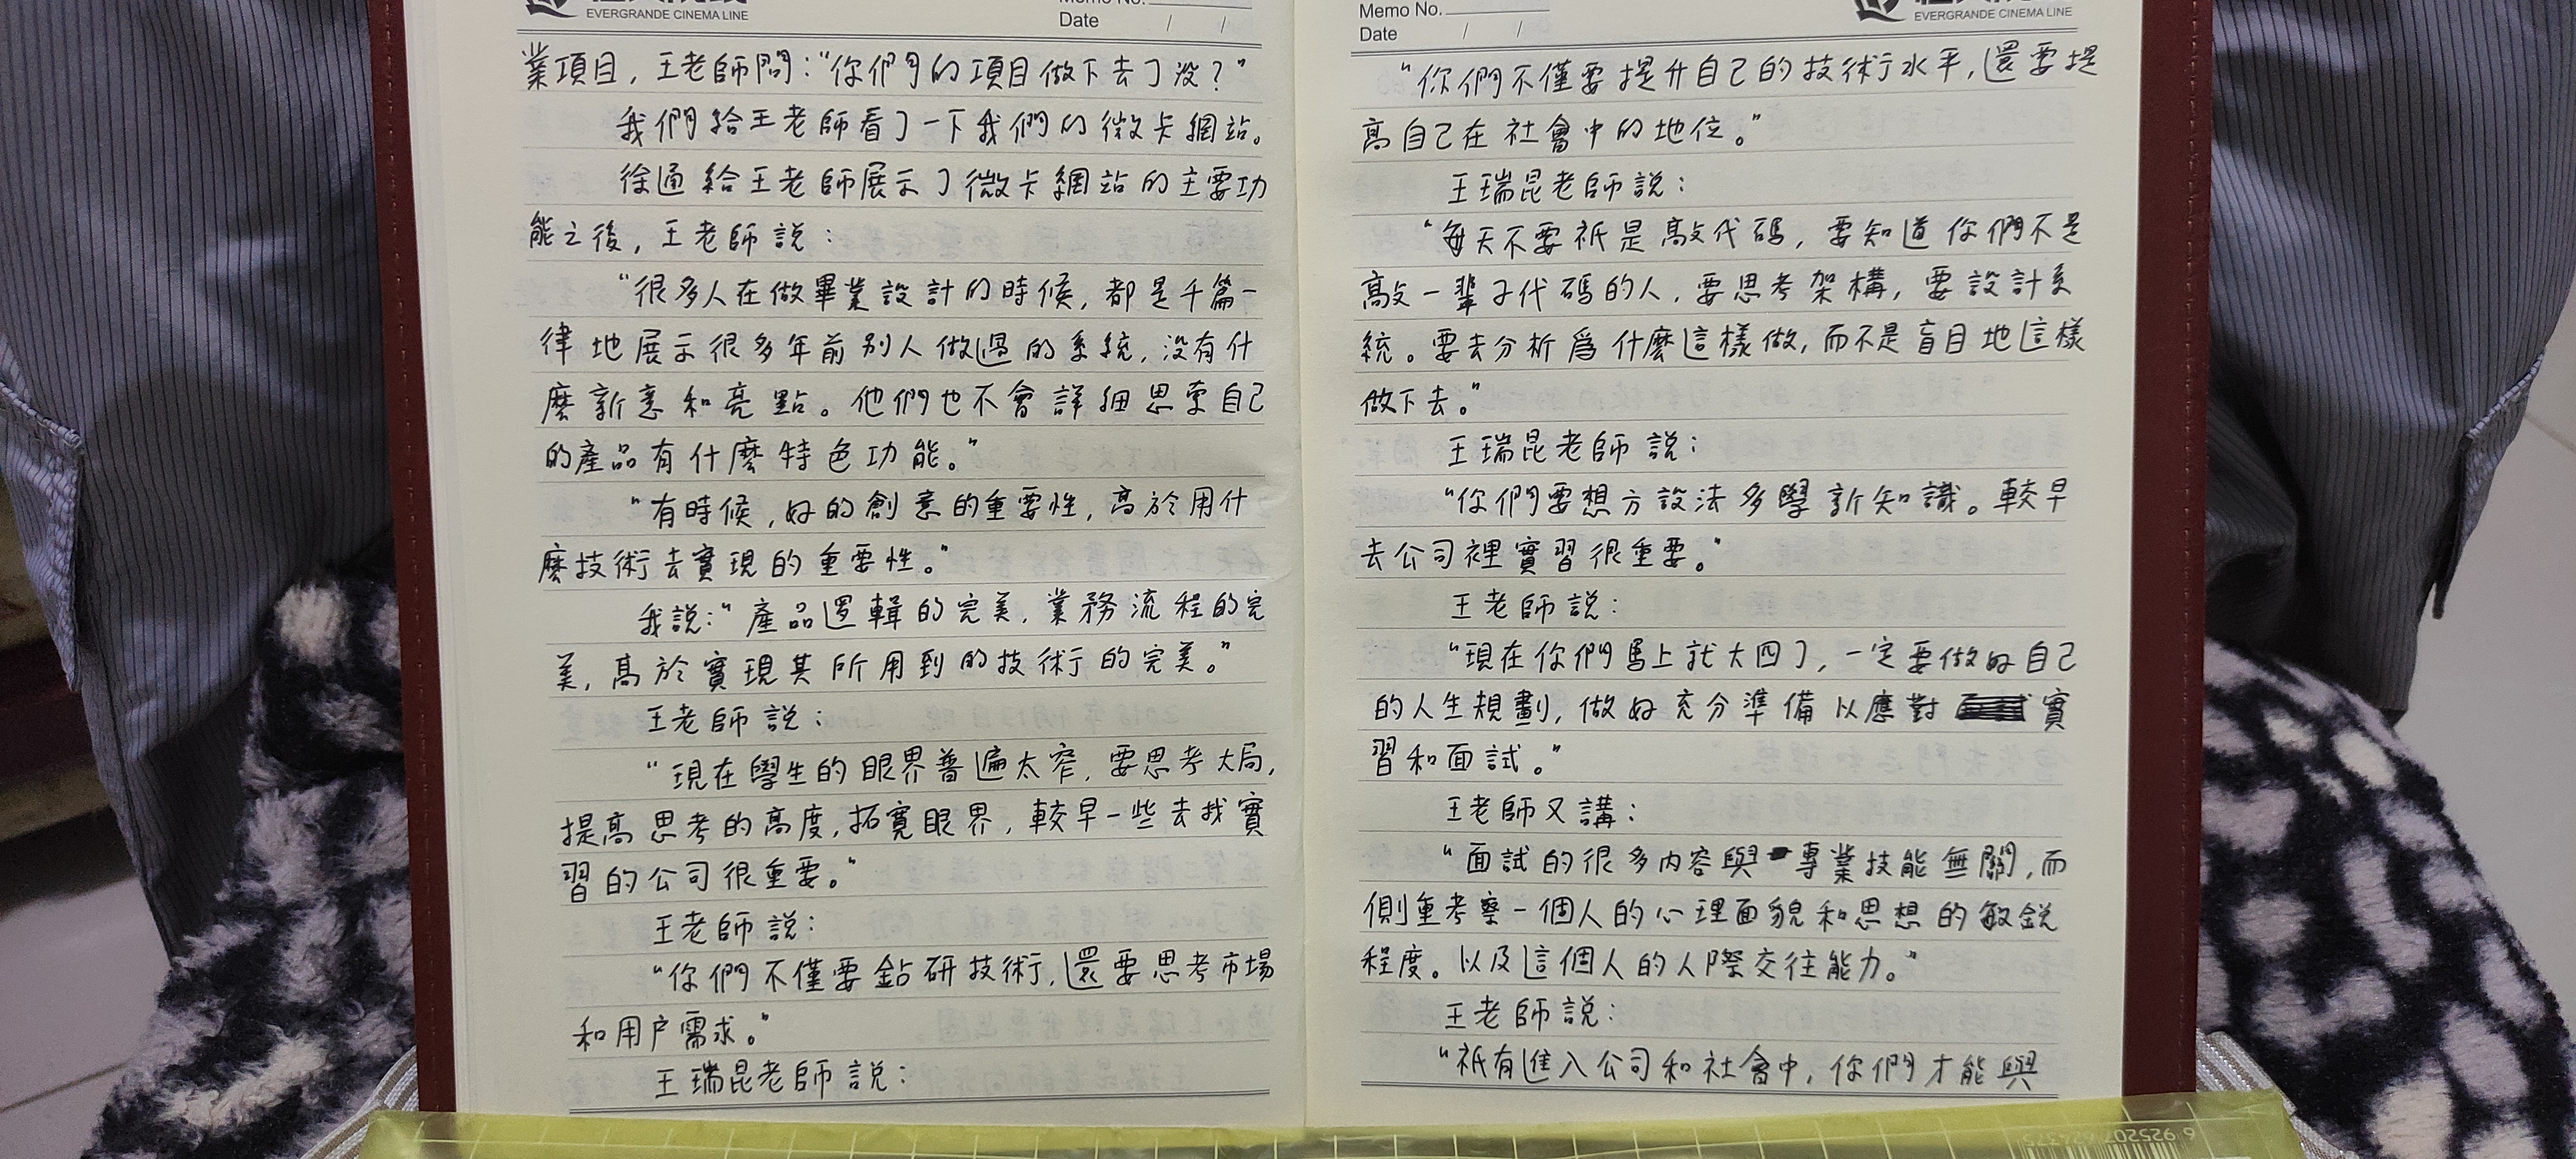 EVERGRANDE CINEMA LINE
Memo No.
Date / /
業項目，王老師問：“你們的項目做下去了没？”
我們給王老師看了一下我們的微卡網站。
徐通給王老師展示了微卡網站的主要功
能之後，王老師説：
“很多人在做畢業設計的時候，都是千篇一
律地展示很多年前别人做過的系統，没有什
麽新意和亮點。他們也不會詳細思索自己
的產品有什麽特色功能。”
“有時候，好的創意的重要性，高於用什
麽技術去實現的重要性。”
我説：“產品邏輯的完美，業務流程的完
美，高於實現其所用到的技術的完美。”
王老師説：
“現在學生的眼界普遍太窄，要思考大局，
提高思考的高度，拓寬眼界，較早一些去找實
習的公司很重要。”
王老師説：
“你們不僅要鉆研技術，還要思考市場
和用户需求。”
王瑞昆老師説：
Memo No.
Date / /
EVERGRANDE CINEMA LINE
“你們不僅要提升自己的技術水平，還要提
高自己在社會中的地位。”
王瑞昆老師説：
“每天不要祇是敲代碼，要知道你們不是
敲一輩子代碼的人，要思考架構，要設計系
統。要去分析爲什麽這樣做，而不是盲目地這樣
做下去。”
王瑞昆老師説：
“你們要想方設法多學新知識。較早
去公司裡實習很重要。”
王老師説：
“現在你們馬上就大四了，一定要做好自己
的人生規劃，做好充分準備以應對實
習和面試。”
王老師又講：
“面試的很多内容與專業技能無關，而
側重考察一個人的心理面貌和思想的敏鋭
程度。以及這個人的人際交往能力。”
王老師説：
“祇有進入公司和社會中，你們才能與